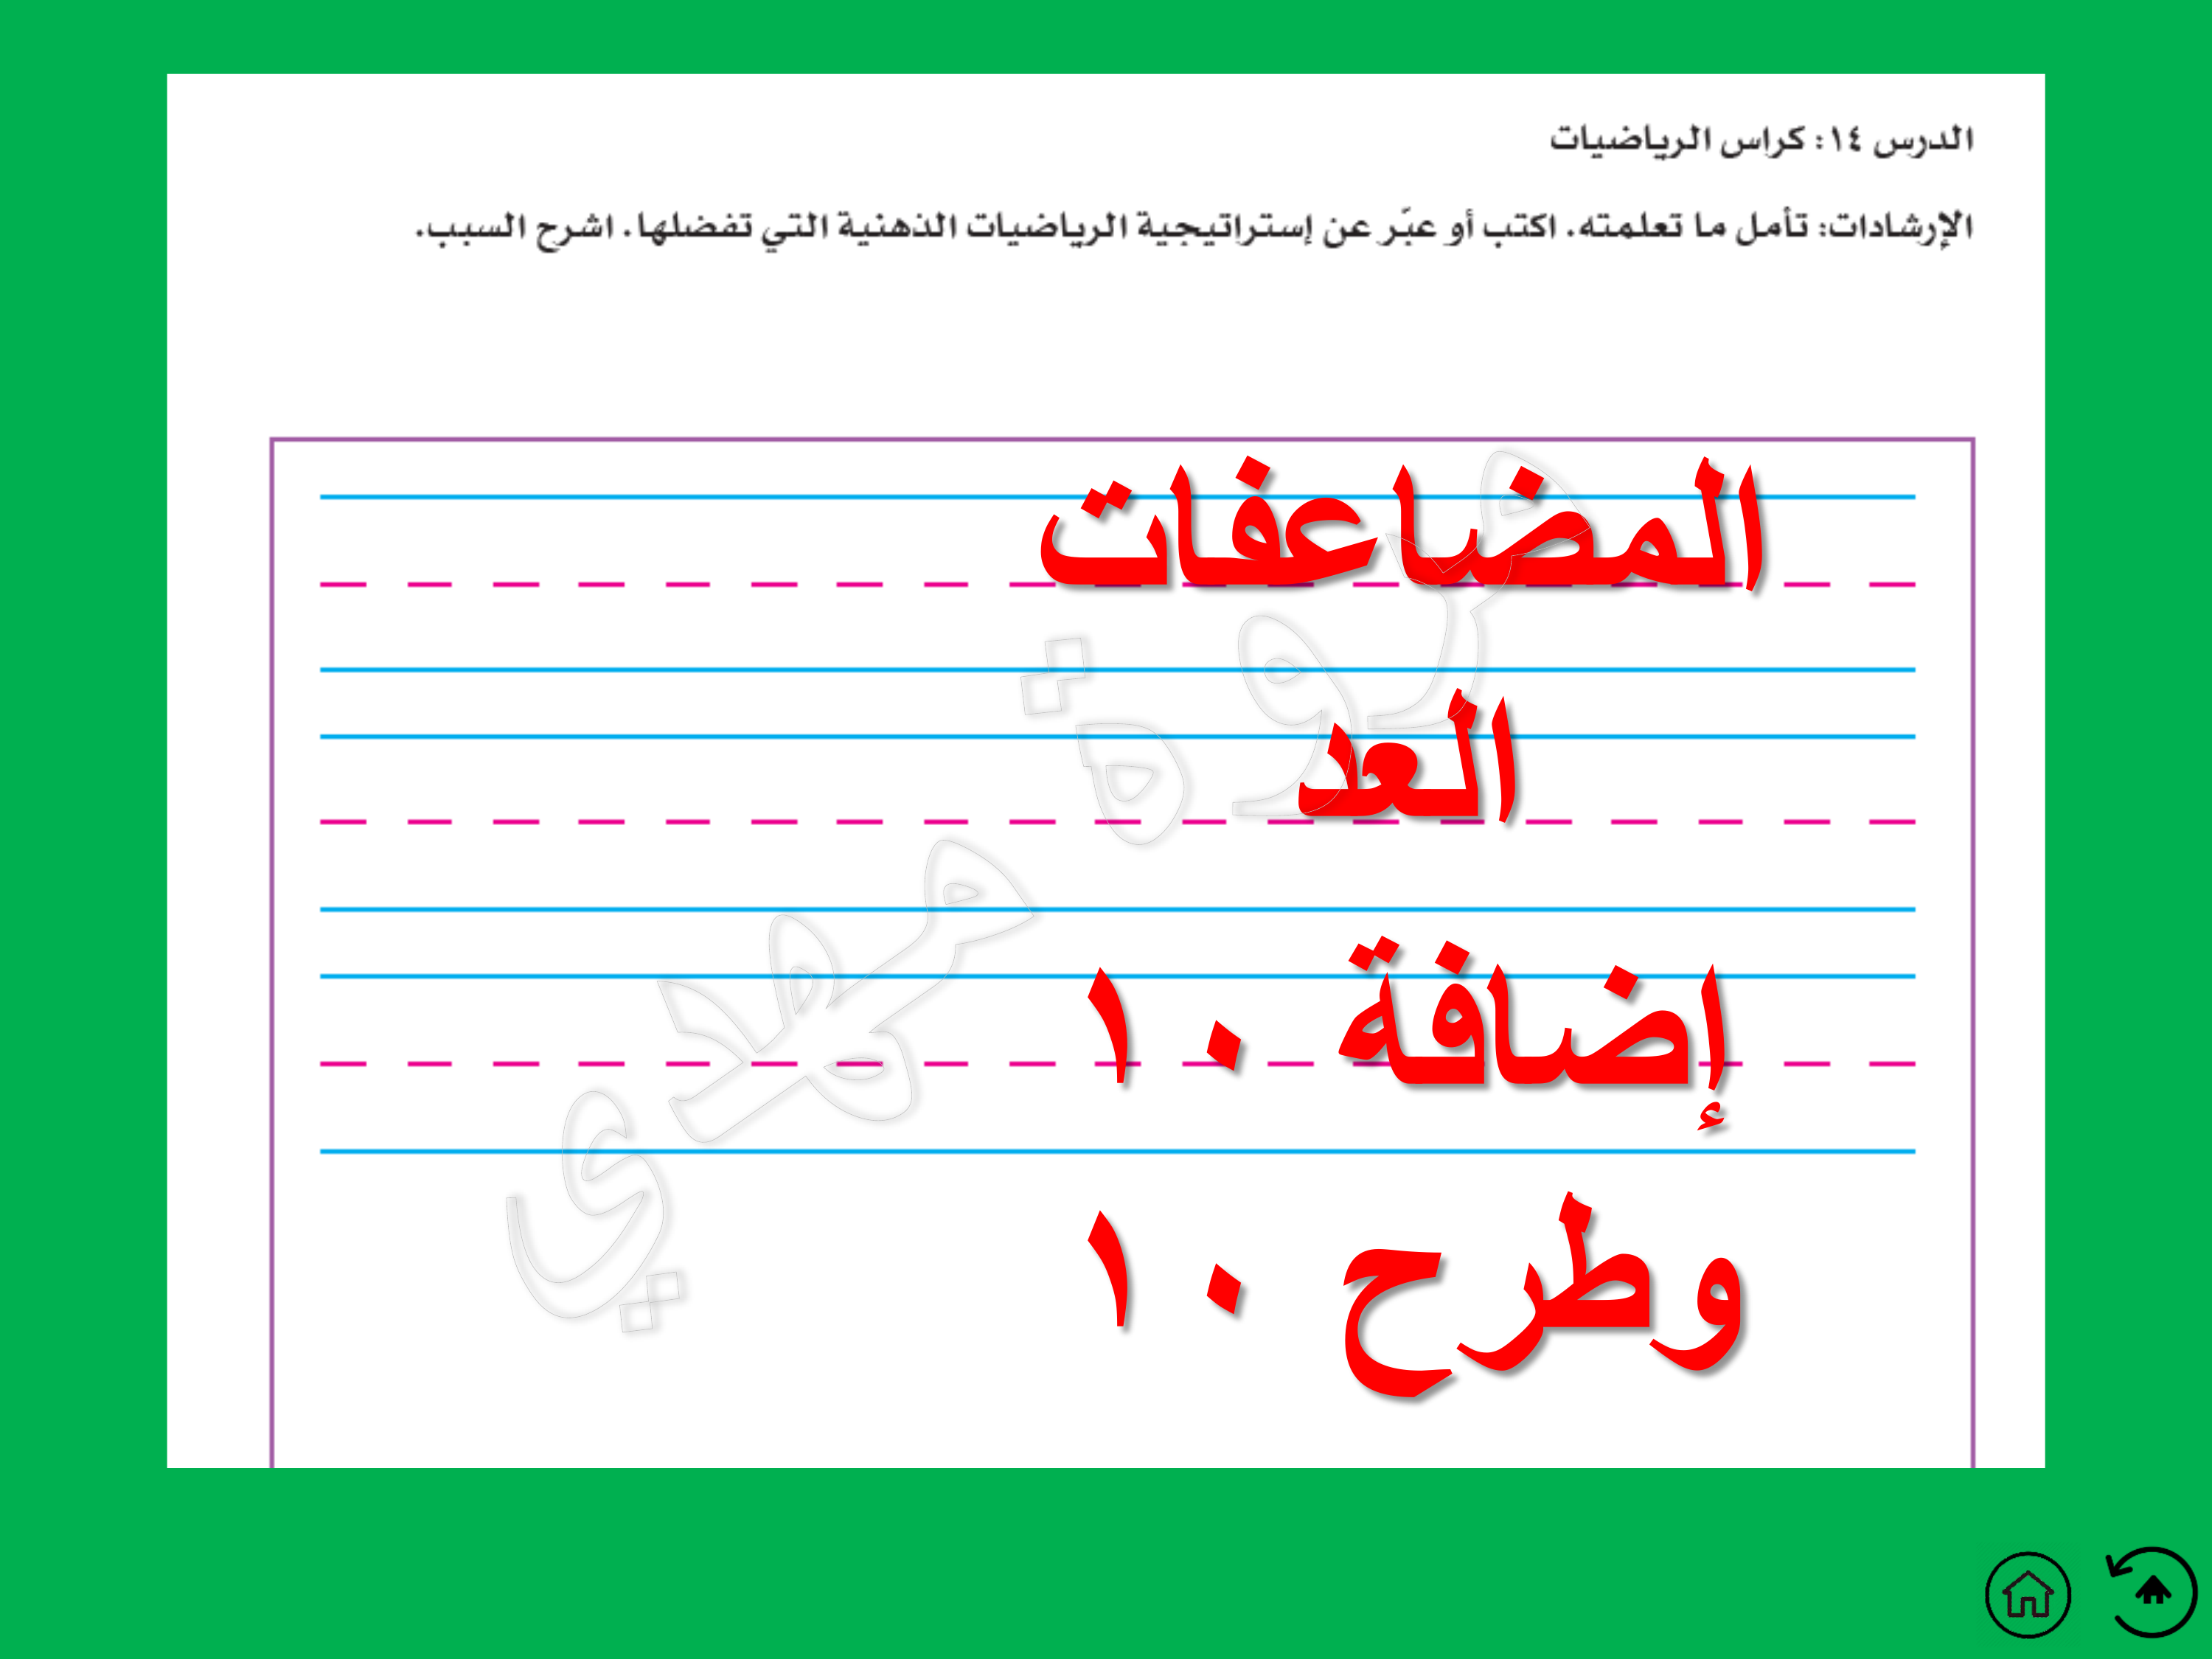 الدرس ١٤: كراس الرياضيات
الإرشادات: تأمل ما تعلمته. اكتب أو عبّر عن إستراتيجية الرياضيات الذهنية التي تفضلها. اشرح السبب.
المضاعفات
العد
إضافة ١٠
وطرح ١٠
مروة مهدي